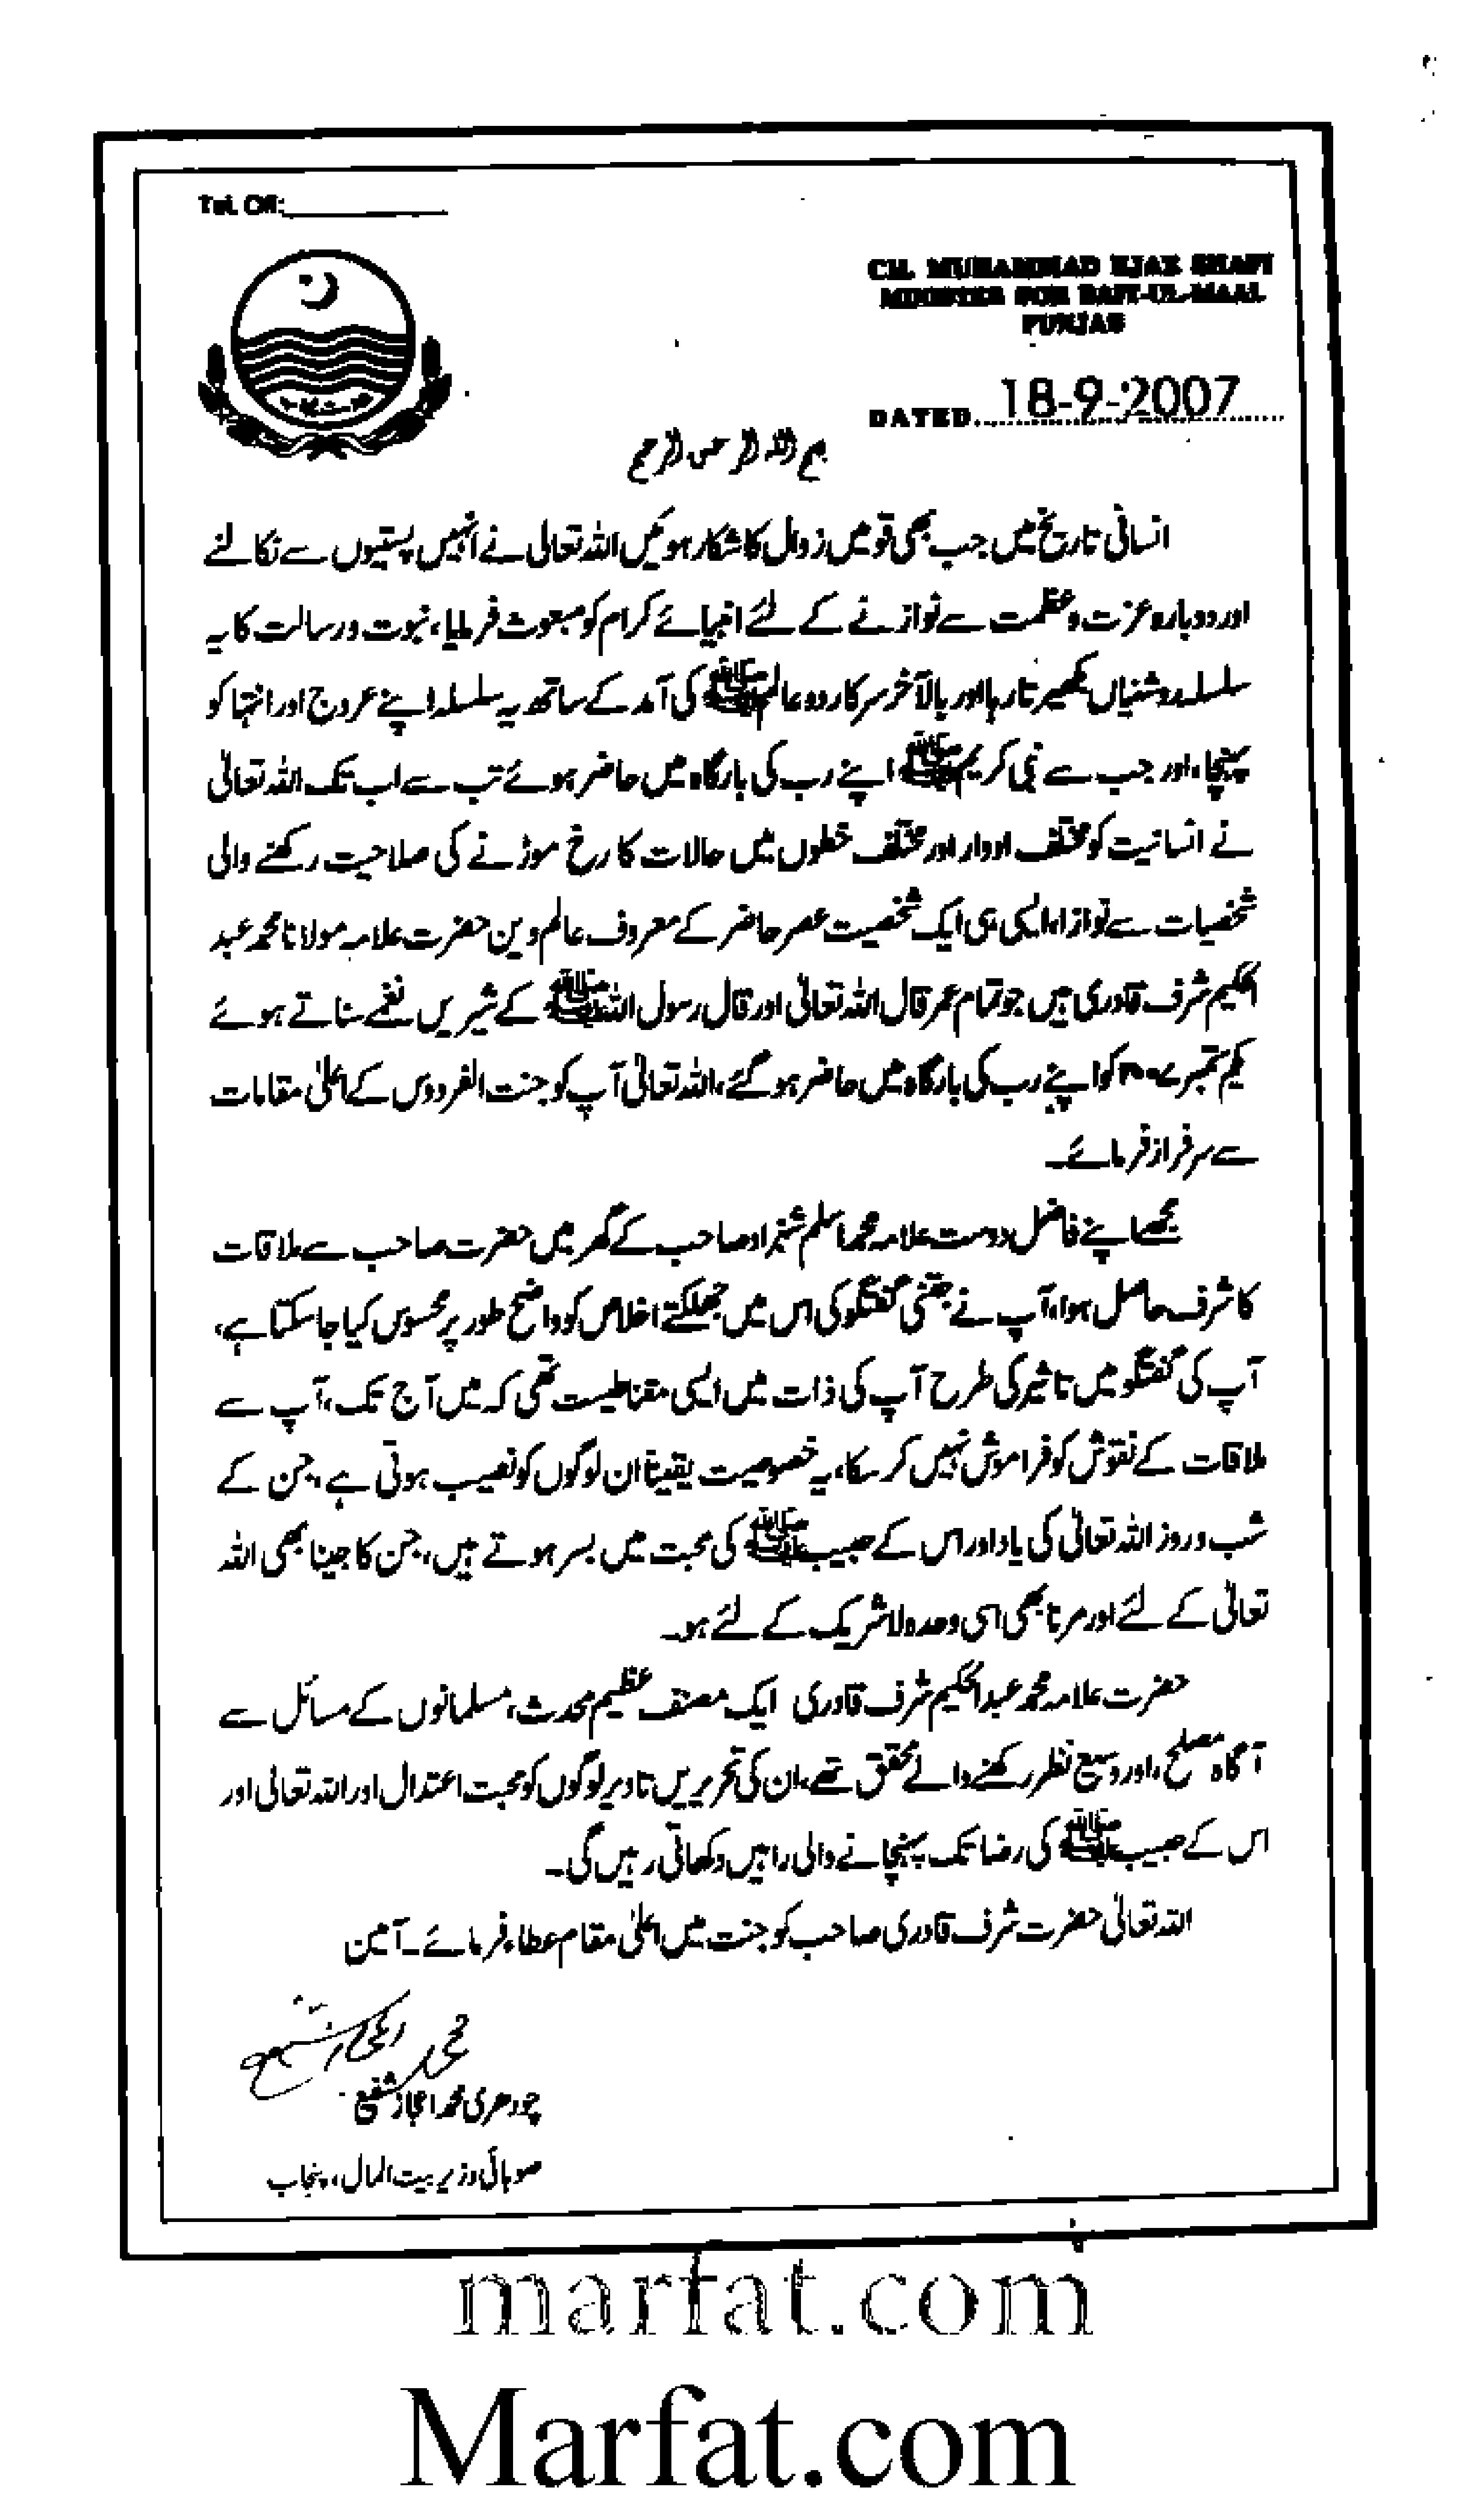 Tel. Off:
CH. MUHAMMAD EJAZ SHAFI
MINISTER FOR BAIT-UL-MAAL
PUNJAB
DATED 18-9-2007
بسم اللہ الرحمن الرحیم
انسانی تاریخ میں جب بھی قومیں زوال کا شکار ہوئیں اللہ تعالی نے انہیں پستیوں سے نکالنے
اور دوبارہ عزت و عظمت سے نوازنے کے لئے انبیائے کرام کو مبعوث فرمایا، نبوت و رسالت کا یہ
سلسلہ روشنیاں بکھیرتا رہا اور بالآخر سرکار دو عالم ﷺ کی آمد کے ساتھ یہ سلسلہ اپنے عروج اور انتہا کو
پہنچا، اور جب سے نبی کریم ﷺ اپنے رب کی بارگاہ میں حاضر ہوئے تب سے اب تک اللہ تعالیٰ
نے انسانیت کو مختلف ادوار اور مختلف خطوں میں حالات کا رخ موڑنے کی صلاحیت رکھنے والی
شخصیات سے نوازا، ایسی ہی ایک شخصیت عصر حاضر کے معروف عالم دین حضرت علامہ مولانا محمد عبد
الحکیم شرف قادری ہیں جو تمام عمر قال اللہ تعالیٰ اور قال رسول اللہ ﷺ کے شیریں نغمے سناتے ہوئے
یکم ستمبر ۲۰۰۷ کو اپنے رب کی بارگاہ میں حاضر ہو گئے، اللہ تعالیٰ آپ کو جنت الفردوس کے اعلیٰ مقامات
سے سرفراز فرمائے۔
مجھے اپنے فاضل دوست علامہ محمد اسلم شہزاد صاحب کے گھر میں حضرت صاحب سے ملاقات
کا شرف حاصل ہوا، آپ نے جتنی گفتگو کی اس میں جھلکتے اخلاص کو واضح طور پر محسوس کیا جا سکتا ہے،
آپ کی گفتگو میں تاثیر کی طرح آپ کی ذات میں ایسی مقناطیست تھی کہ میں آج تک، آپ سے
ملاقات کے نقوش کو فراموش نہیں کر سکا، یہ خصوصیت یقینا ان لوگوں کو نصیب ہوتی ہے، جن کے
شب و روز اللہ تعالیٰ کی یاد اور اس کے حبیب ﷺ کی محبت میں بسر ہوتے ہیں، جن کا جینا بھی اللہ
تعالیٰ کے لئے اور مرنا بھی اسی وحدہ لاشریک کے لئے ہو۔
حضرت علامہ محمد عبدالحکیم شرف قادری ایک مصنف عظیم محدث، مسلمانوں کے مسائل سے
آگاہ مصلح، اور وسیع نظر رکھنے والے محقق تھے، ان کی تحریریں تادیر لوگوں کو محبت اعتدال اور اللہ تعالیٰ اور
اس کے حبیب ﷺ کی رضا تک پہنچانے والی راہیں دکھاتی رہیں گی۔
اللہ تعالیٰ حضرت شرف قادری صاحب کو جنت میں اعلیٰ مقام عطاء فرمائے۔ آمین
محمد اعجاز شفیع
چودھری محمد اعجاز شفیع
صوبائی وزیر بیت المال، پنجاب
marfat.com
Marfat.com